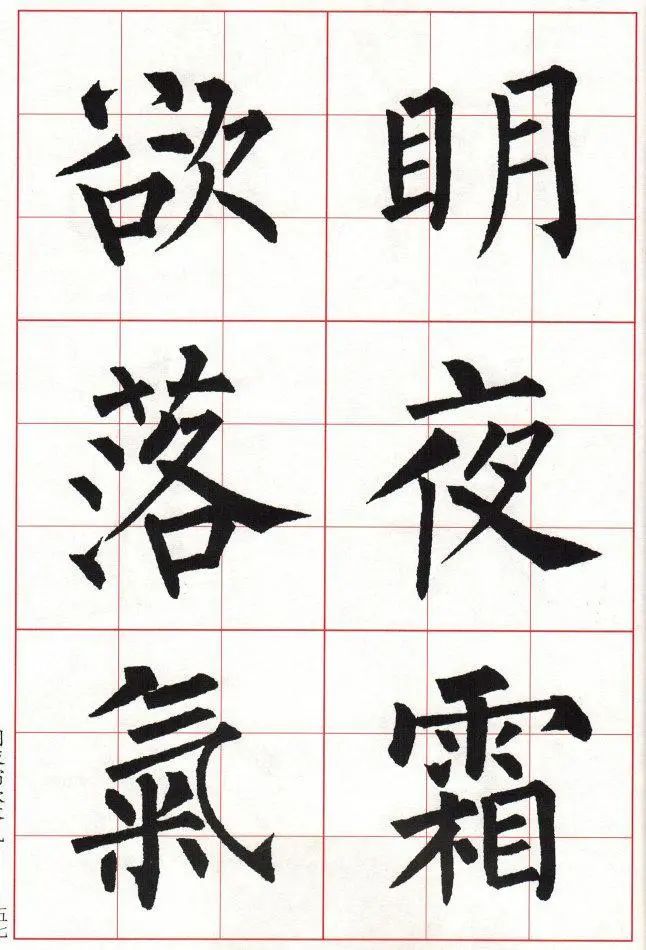 明夜霜
欲落氣